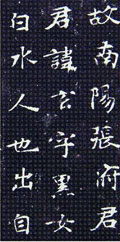 故南陽張府君
君諱玄字黑女
白水人也出自